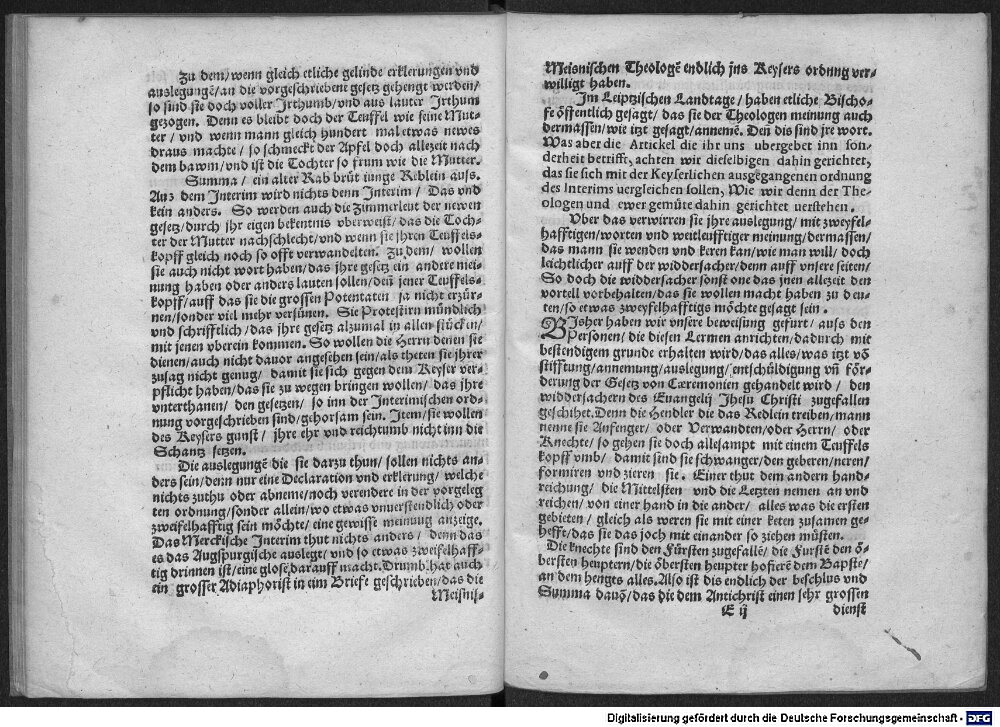 Zu dem/ wenn gleich etliche gelinde erklerungen vnd
auslegungē/ an die vorgeschriebene gesetz gehengt werden/
so sind sie doch voller Irthumb/ vnd aus lauter Irthum
gezogen. Denn es bleibt doch der Teuffel wie seine Mut-
ter/ vnd wenn mann gleich hundert mal etwas newes
draus machte/ so schmeckt der Apfel doch allezeit nach
dem bawm/ vnd ist die Tochter so frum wie die Mutter.
Summa/ ein alter Rab brüt iunge Reblein auss.
Aus dem Interim wird nichts denn Interim/ Das vnd
kein anders. So werden auch die Zimmerleut der newen
gesetz/ durch ihr eigen bekentnis vberweist/ das die Toch-
ter der Mutter nachschlecht/ vnd wenn sie jhren Teuffels-
kopff gleich noch so offt verwandelten. Zu dem/ wollen
sie auch nicht wort haben/ das jhre gesetz ein andere mei-
nung haben oder anders lauten sollen/ deñ jener Teuffels-
kopff/ auff das sie die grossen Potentaten ja nicht erzür-
nen/ sonder viel mehr versünen. Sie Protestirn mündlich
vnd schrifftlich/ das jhre gesetz alzumal in allen stücken/
mit jenen vberein kommen. So wollen die Herrn denen sie
dienen/ auch nicht dauor angesehen sein/ als theten sie jhrer
zusag nicht genug/ damit sie sich gegen dem Keyser ver-
pflicht haben/ das sie zu wegen bringen wollen/ das jhre
vnterthanen/ den gesetzen/ so inn der Interimischen ord-
nung vorgeschrieben sind/ gehorsam sein. Item/ sie wollen
des Keysers gunst/ jhre ehr vnd reichtumb nicht inn die
Schantz setzen.
Die auslegungē die sie darzu thun/ sollen nichts an-
ders sein/ denn nur eine Declaration vnd erklerung/ welche
nichts zuthu oder abneme/ noch verendere in der vorgeleg
ten ordnung/ sonder allein/ wo etwas vnuerstendlich oder
zweifelhafftig sein möchte/ eine gewisse meinung anzeige.
Das Merckische Interim thut nichts anders/ denn das
es das Augspurgische auslegt/ vnd so etwas zweifelhaff-
tig drinnen ist/ eine glose darauff macht. Drumb hat auch
ein grosser Adiaphorist in eim Briefe geschrieben/ das die
Meisnis-
Meisnischen Theologē endlich jns Keysers ordnung ver-
williget haben.
Im Leiptzischen Landtage/ haben etliche Bischo-
fe öffentlich gesagt/ das sie der Theologen meinung auch
dermassen/ wie itzt gesagt/ annemē. Deñ dis sind jre wort.
Was aber die Artickel die ihr uns ubergebet inn son-
derheit betrifft, achten wir dieselbigen dahin gerichtet,
das sie sich mit der Keyserlichen ausgegangenen ordnung
des Interims uergleichen sollen, Wie wir denn der The-
ologen und ewer gemüte dahin gerichtet uerstehen.
Vber das verwirren sie jhre auslegung/ mit zweyfel-
hafftigen/ worten vnd weitleufftiger meinung/ dermassen/
das mann sie wenden vnd keren kan/ wie man will/ doch
leichtlicher auff der widdersacher/ denn auff vnsere seiten/
So doch die widdersacher sonst one das jnen allezeit den
vortell vorbehalten/ das sie wollen macht haben zu deu-
ten/ so etwas zweyfelhafftigs möchte gesagt sein.
BIsher haben wir vnsere beweisung gefurt/ auss den
Personen/ die diesen Lermen anrichten/ dadurch mit
bestendigem grunde erhalten wird/ das alles/ was itzt võ
stifftung/ annemung/ auslegung/ entschüldigung vñför-
derung der Gesetz von Cæremonien gehandelt wird/ den
widdersachern des Euangelij Jhesu Christi zugefallen
geschihet. Denn die Hendler die das Redlein treiben/ mann
nenne sie Anfenger/ oder Verwandten/ oder Herrn/ oder
Knechte/ so gehen sie doch allesampt mit einem Teuffels
kopff vmb/ damit sind sie schwanger/ den geberen/ neren/
formiren vnd zieren sie. Einer thut dem andern hand-
reichung/ die Mittelsten vnd die Letzten nemen an vnd
reichen/ von einer hand in die ander/ alles was die ersten
gebieten/ gleich als weren sie mit einer keten zusamen ge-
hefft/ das sie das joch mit einander so ziehen müsten.
Die knechte sind den Fürsten zugefallē/ die Furstē den ö-
bersten heuptern/ die öbersten heupter hofierē dem Bapste/
an dem hengts alles. Also ist dis endlich der beschlus vnd
Summa dauõ/ das die dem Antichrist einen sehr grossen
E ij dienst
Digitalisierung gefördert durch die Deutsche Forschungsgemeinschaft - DFG